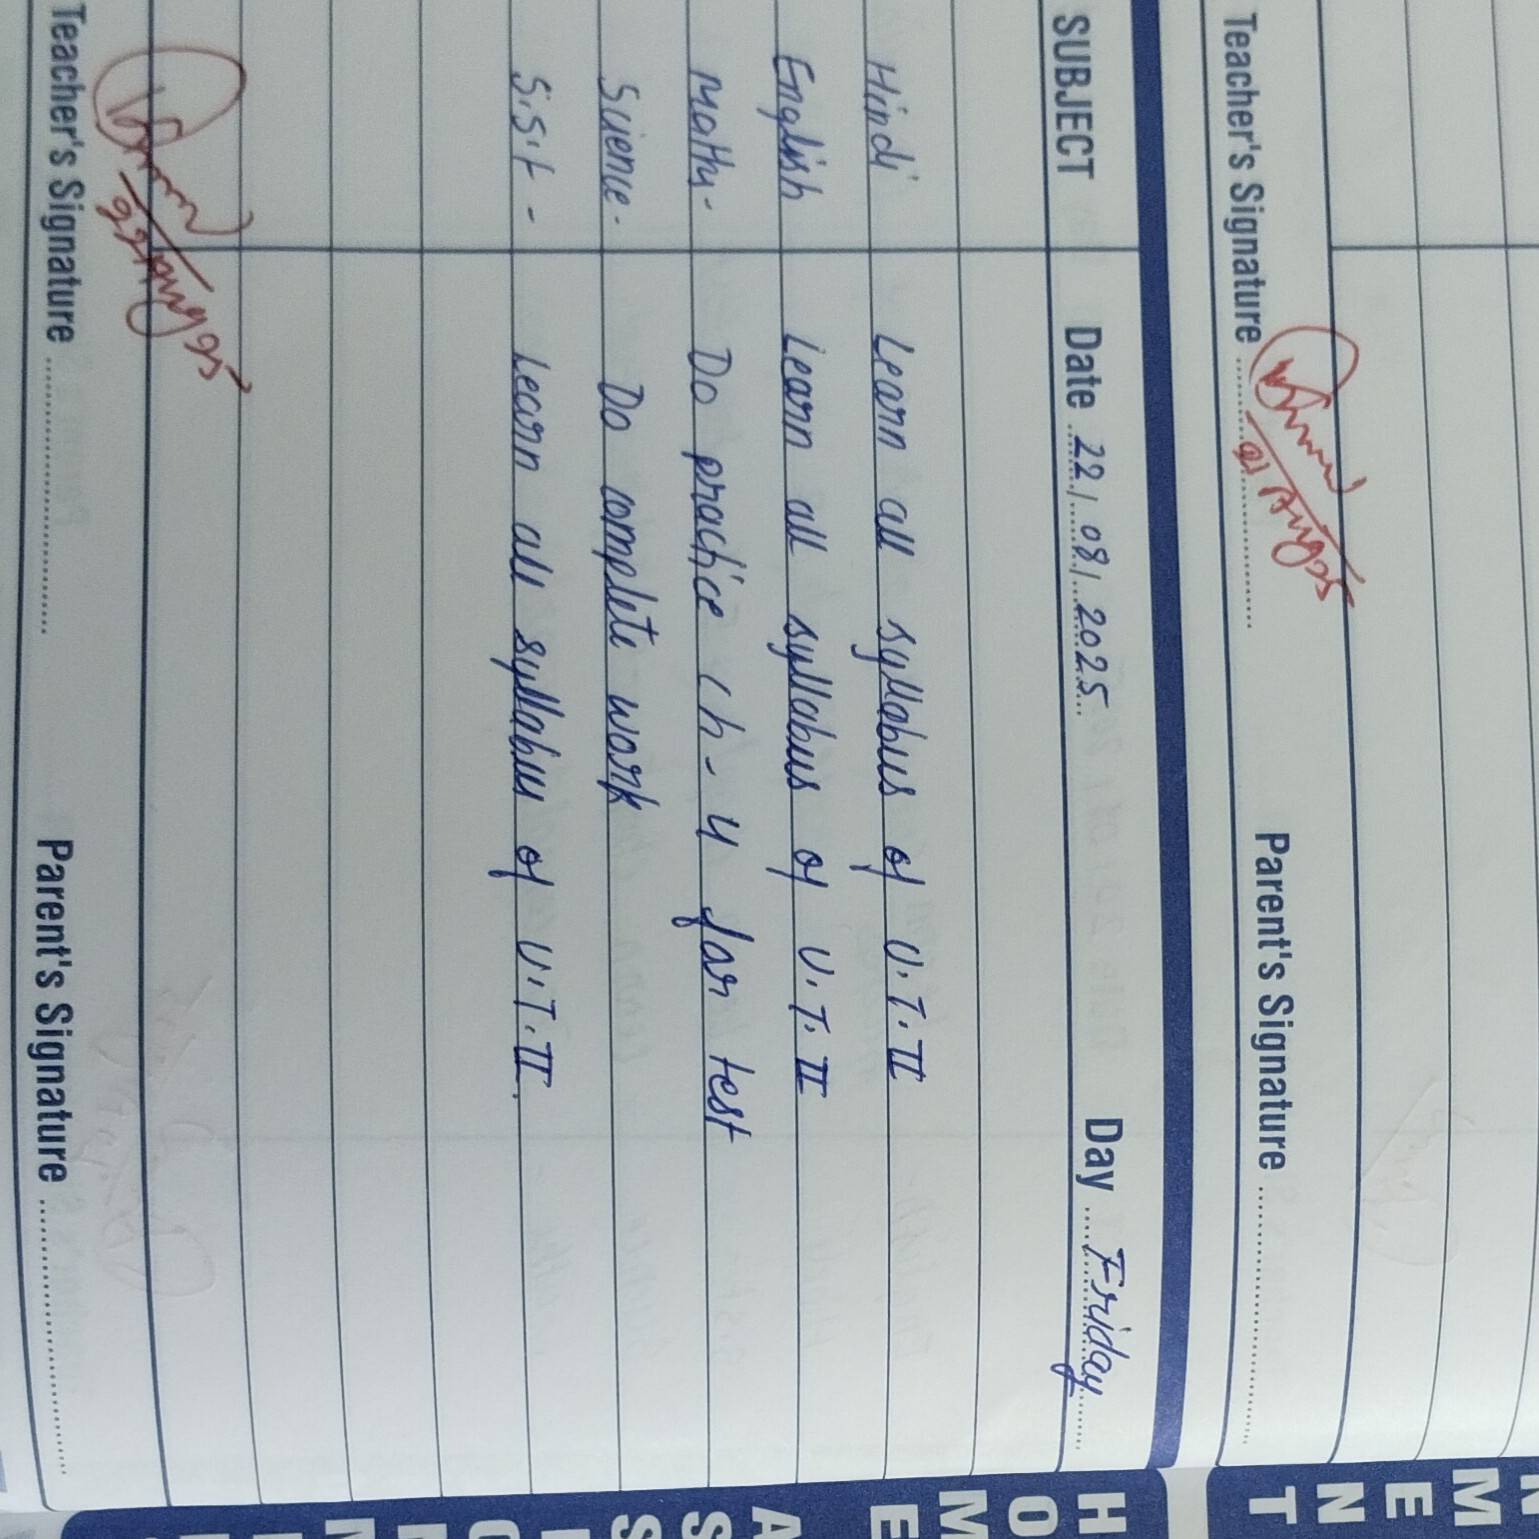 Teacher's Signature .................... Parent's Signature ....................
SUBJECT Date 22/08/2025 Day Friday
Hindi Learn all syllabus of U.T.II
English Learn all syllabus of U.T.II
Maths- Do practice ch-4 for test
Science- Do complete work
S.St- Learn all syllabus of U.T.II.
Teacher's Signature .................... Parent's Signature ....................